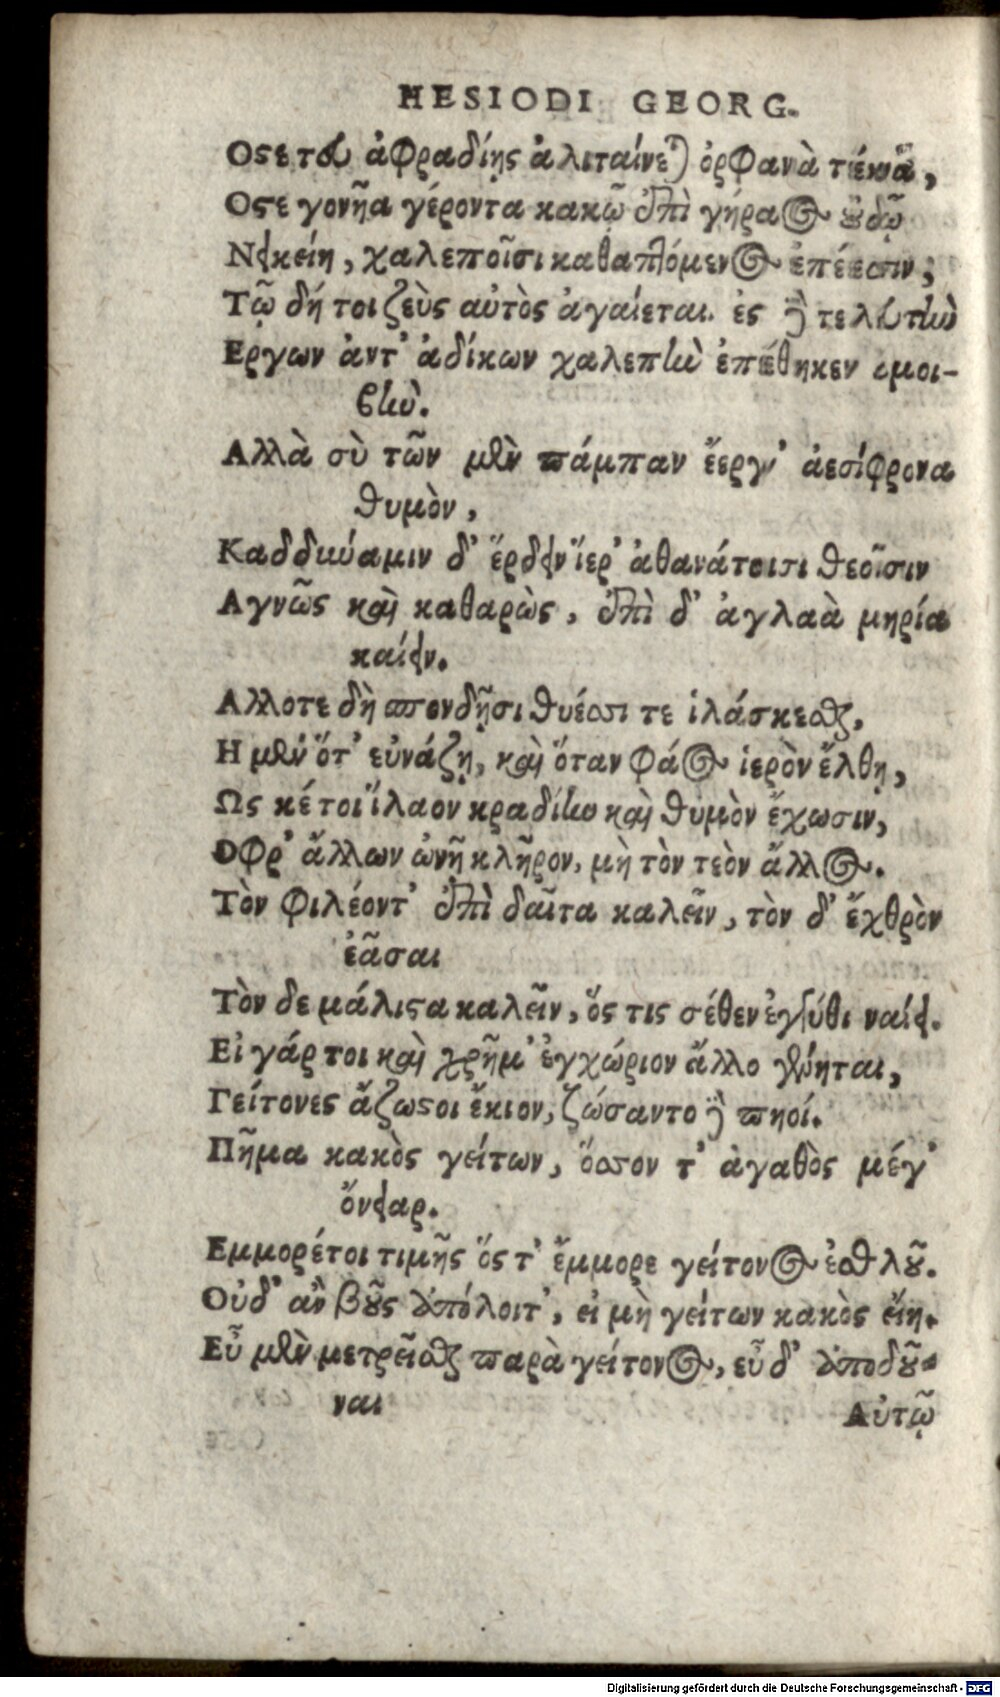 HESIODI GEORG.
Οςε τευ ἀφραδίῃς ἀλιταίνεται ὀρφανὰ τέκνα,
Οςε γονῆα γέροντα κακῷ ἐπὶ γήραος ȣ̓δῷ
Νεικείη, χαλεποῖσι καθαπτόμενος ἐπέεσσιν,
Τῷ δή τοι ζεὺς αὐτὸς ἀγαίεται. ἐς δὲ τελευτὴν
Εργων ἀντ' ἀδίκων χαλεπὴν ἐπέθηκεν ἀμοι-
βὴν.
Αλλὰ σὺ τῶν μὲν πάμπαν ἔεργ' ἀεσίφρονα
θυμὸν,
Καδδιώαμιν δ' ἔρδειν ἱερ' ἀθανάτοισι θεοῖσιν
Αγνῶς καὶ καθαρὼς, ἐπὶ δ' ἀγλαὰ μηρία
καίειν.
Αλλοτε δὴ σπονδῇσι θυέσσι τε ἱλάσκεσθαι,
Η μὲν ὅτ' εὐνάζῃ, καὶ ὅταν φάος ἱερὸν ἔλθῃ,
Ως κέ τοι ἵλαον κραδίην καὶ θυμὸν ἔχωσιν,
Οφρ' ἄλλων ὠνῇ κλῆρον, μὴ τὸν τεὸν ἄλλος.
Τὸν φιλέοντ' ἐπὶ δαῖτα καλεῖν, τὸν δ' ἔχθρὸν
ἐᾶσαι
Τὸν δε μάλιςα καλεῖν, ὅς τις σέθεν ἐγγύθι ναίει.
Εἰ γάρ τοι καὶ χρῆμ' ἐγχώριον ἄλλο γένηται,
Γείτονες ἄζωςοι ἔκιον, ζώσαντο δὲ πηοί.
Πῆμα κακὸς γείτων, ὅσσον τ' ἀγαθὸς μέγ'
ὄνειαρ.
Εμμορέ τοι τιμῆς ὅς τ' ἔμμορε γείτονος ἐσθλȣ͂.
Οὐδ' ἂν βȣ͂ς ἀπόλοιτ', εἰ μὴ γείτων κακὸς εἴη.
Εὖ μὲν μετρεῖσθαι παρὰ γείτονος, εὖ δ' ἀποδȣ͂-
ναι
Αὐτῷ
Digitalisierung gefördert durch die Deutsche Forschungsgemeinschaft - DFG